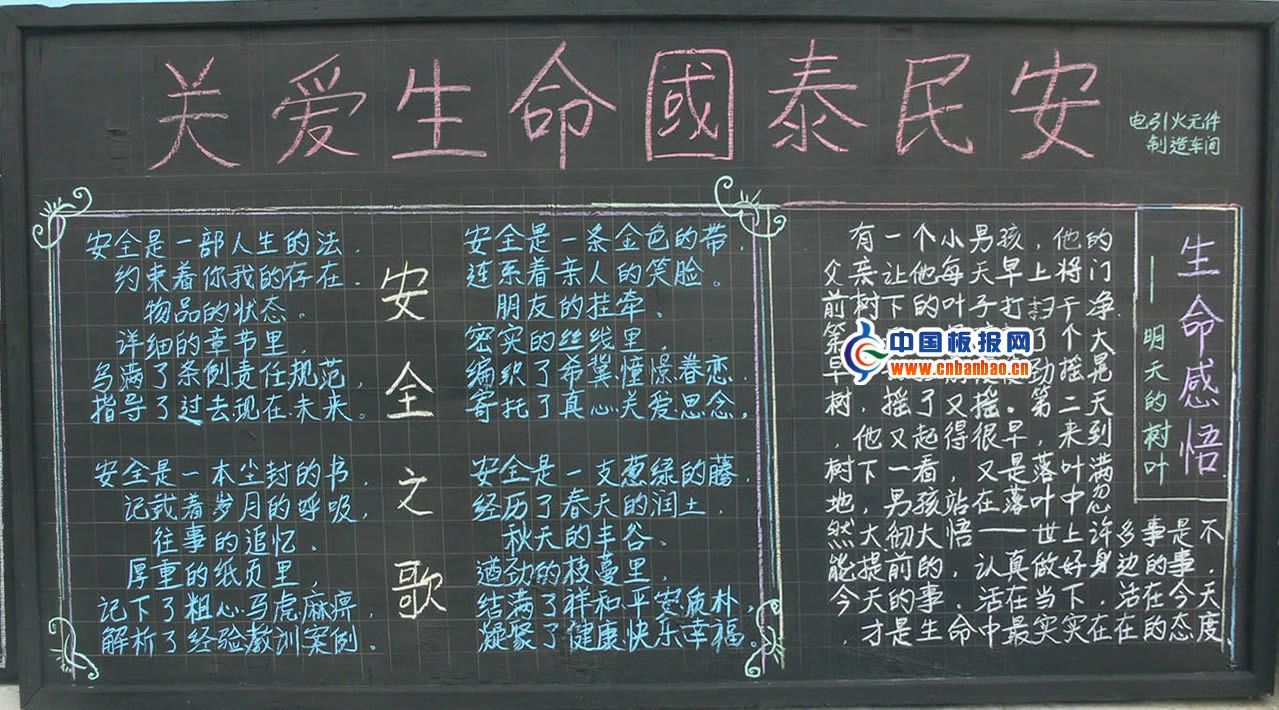 关爱生命國泰民安
电引火元件
制造车间
安全之歌
安全是一部人生的法，
约束着你我的存在．
物品的状态。
详细的章节里，
写满了条例责任规范，
指导了过去现在未来。
安全是一本尘封的书，
记载着岁月的呼吸，
往事的追忆、
厚重的纸页里，
记下了粗心马虎麻痹，
解析了经验教训案例．
安全是一条金色的带，
连系着亲人的笑脸。
朋友的挂牵、
密实的丝线里，
编织了希冀憧憬眷恋．
寄托了真心关爱思念，
安全是一支葱绿的藤，
经历了春天的润土，
秋天的丰谷、
遒劲的枝蔓里，
结满了祥和平安质朴，
凝聚了健康快乐幸福。
生命感悟
——明天的树叶
有一个小男孩，他的
父亲让他每天早上将门
前树下的叶子打扫干净．
第 了个大
早 劲摇晃
树，摇了又摇。第二天
，他又起得很早，来到
树下一看，又是落叶满
地，男孩站在落叶中忽
然大彻大悟——世上许多事是不
能提前的，认真做好身边的事，
今天的事．活在当下，活在今天
，才是生命中最实实在在的态度
中国板报网
www.cnbanbao.cn